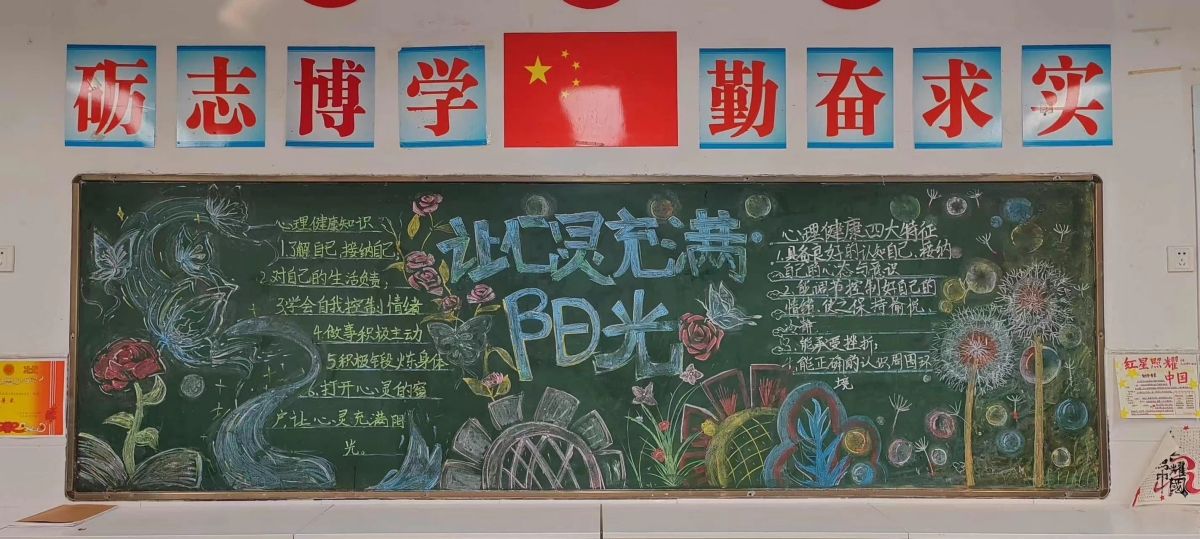 砺志博学
勤奋求实
心理健康知识
1.了解自己,接纳自己
2.对自己的生活负责,
3.学会自我控制情绪
4.做事积极主动
5积极锻炼身体
6.打开心灵的窗
户,让心灵充满阳
光。
让心灵充满
阳光
心理健康四大特征
1.具备良好的认知自己,接纳
自己的心态与意识
2.能调节控制好自己的
情绪,使之保持愉悦
3.能承受挫折;
能正确的认识周围环
境
红星照耀
中国